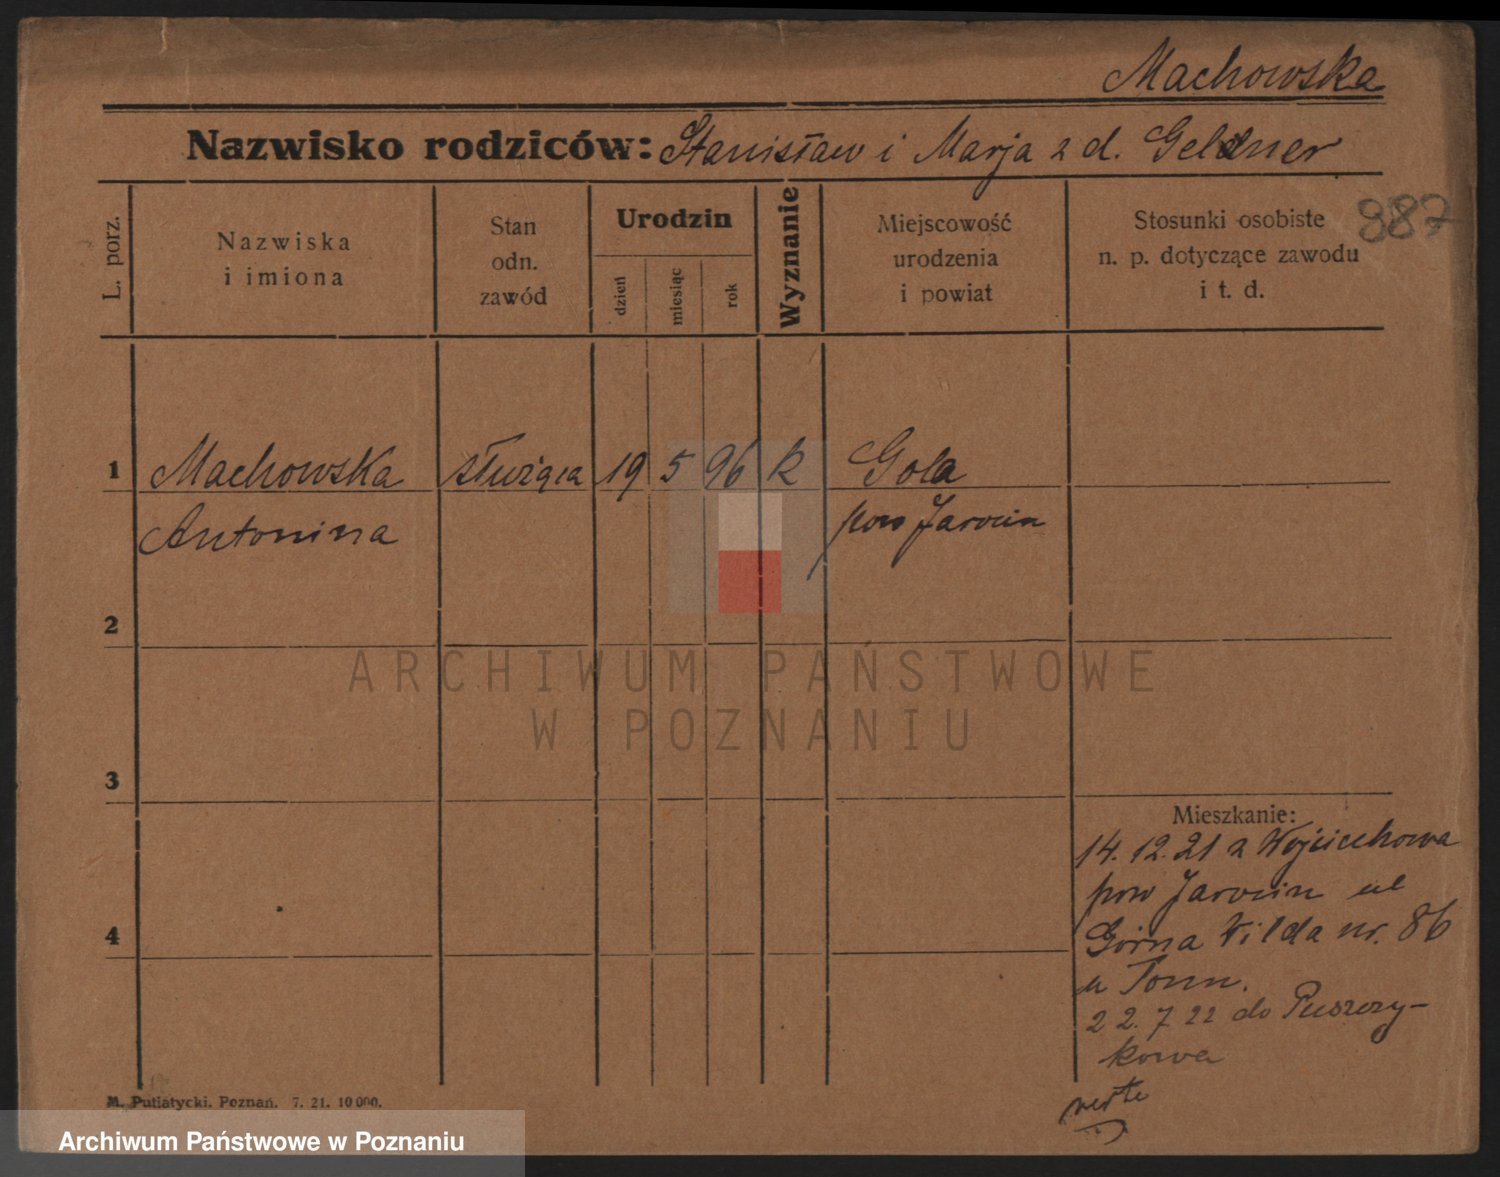 Machowska
Nazwisko rodziców: Stanisław i Marja z d. Geldner
887
L. porz.
Nazwiska
i imiona
Stan
odn.
zawód
Urodzin
dzień
miesiąc
rok
Wyznanie
Miejscowość
urodzenia
i powiat
Stosunki osobiste
n. p. dotyczące zawodu
i t. d.
1 Machowska służąca 19 5 96 k Gola
Antonina pow Jarocin
2
ARCHIWUM PAŃSTWOWE
W POZNANIU
3
Mieszkanie:
14.12.21 z Wojciechowa
pow Jarocin ul
4
Górna Wilda nr. 86
u Tomn.
22.7 22 do Puszczy-
kowa
M. Putiatycki. Poznań. 7. 21. 10 000.
Archiwum Państwowe w Poznaniu